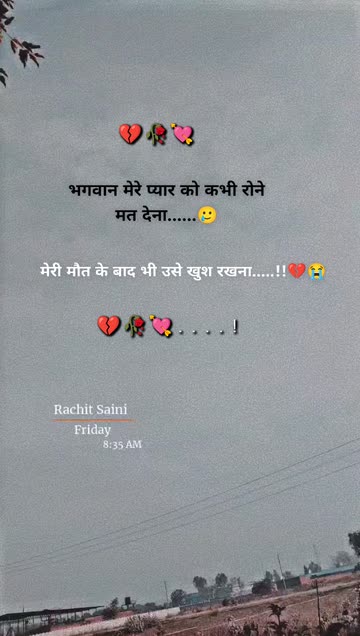 💔🥀💘
भगवान मेरे प्यार को कभी रोने
मत देना......🥲
मेरी मौत के बाद भी उसे खुश रखना.....!!💔😭
💔🥀💘. . . . !
Rachit Saini
Friday
8:35 AM